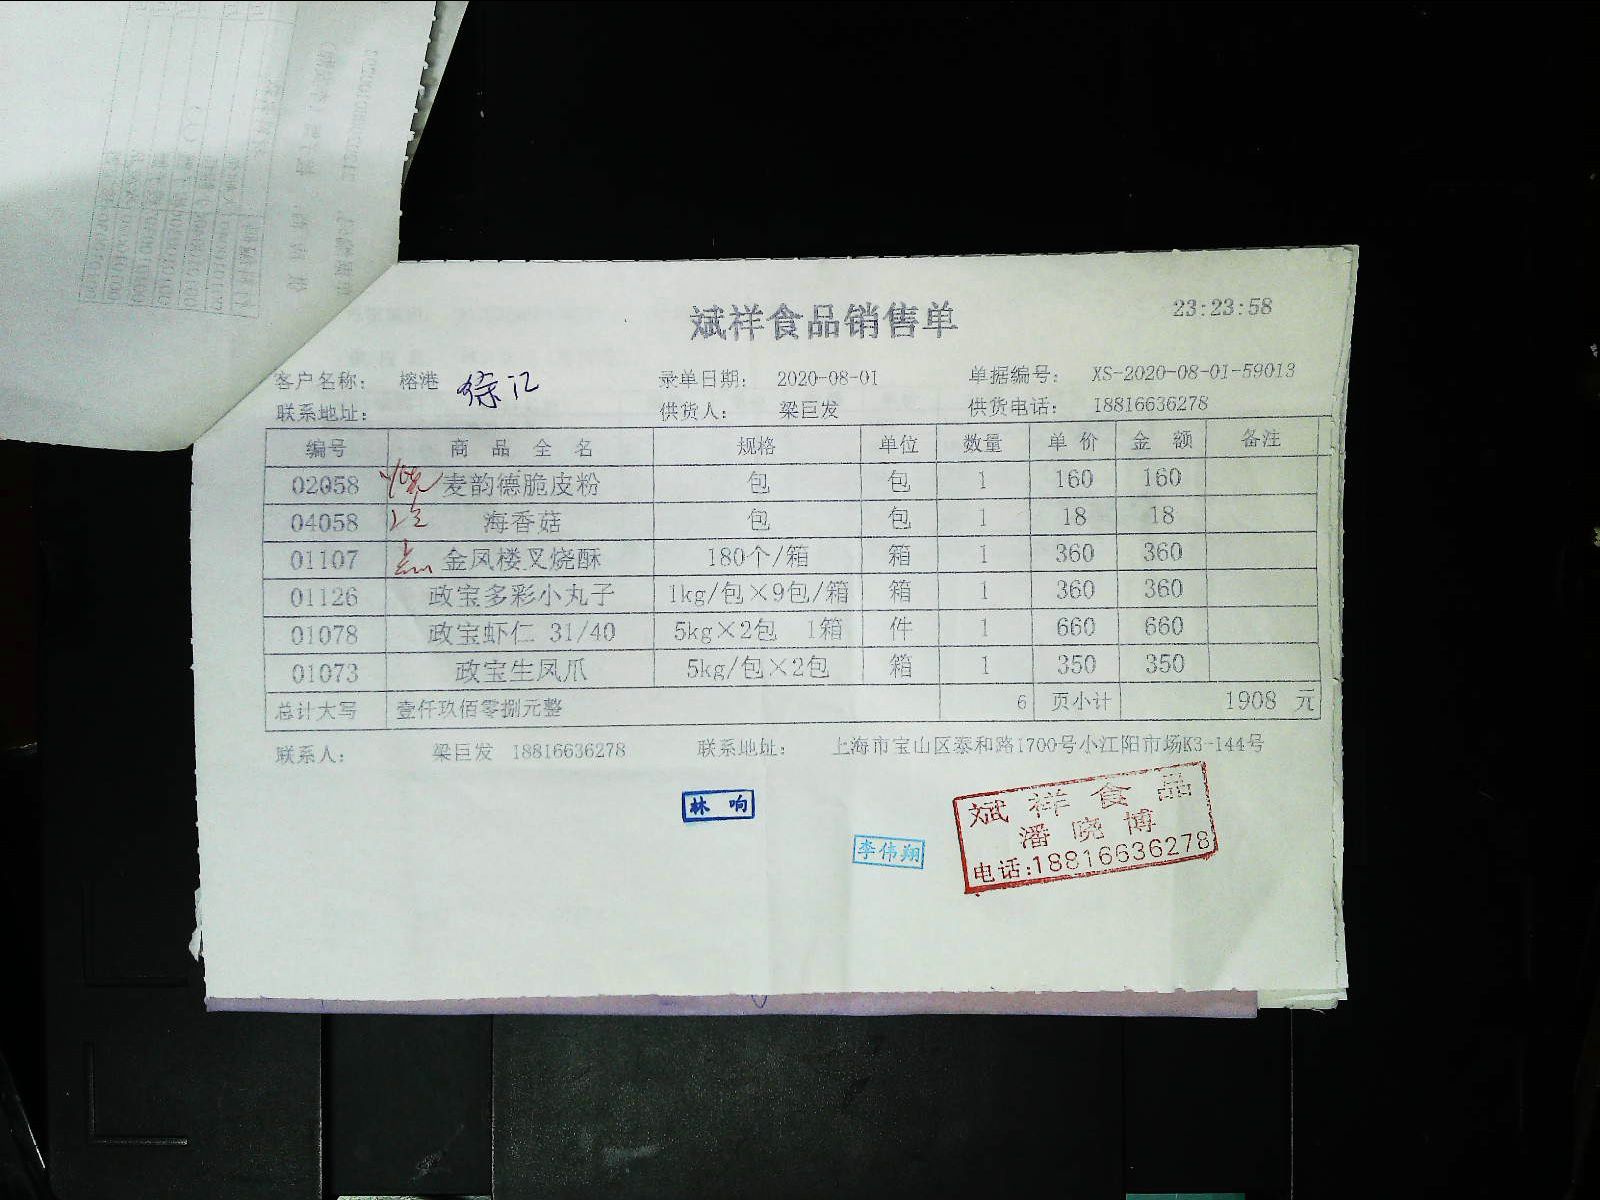 斌祥食品销售单 23:23:58
客户名称： 榕港 徐汇 录单日期： 2020-08-01 单据编号： XS-2020-08-01-59013
联系地址： 供货人： 梁巨发 供货电话： 18816636278
编号 商 品 全 名 规格 单位 数量 单 价 金 额 备注
02058 烧 麦韵德脆皮粉 包 包 1 160 160
04058 海香菇 包 包 1 18 18
01107 点 金凤楼叉烧酥 180个/箱 箱 1 360 360
01126 政宝多彩小丸子 1kg/包×9包/箱 箱 1 360 360
01078 政宝虾仁 31/40 5kg×2包 1箱 件 1 660 660
01073 政宝生凤爪 5kg/包×2包 箱 1 350 350
总计大写 壹仟玖佰零捌元整 6 页小计 1908 元
联系人： 梁巨发 18816636278 联系地址： 上海市宝山区泰和路1700号小江阳市场K3-144号
林 响
李伟翔
斌 祥 食 品
潘 晓 博
电话:18816636278